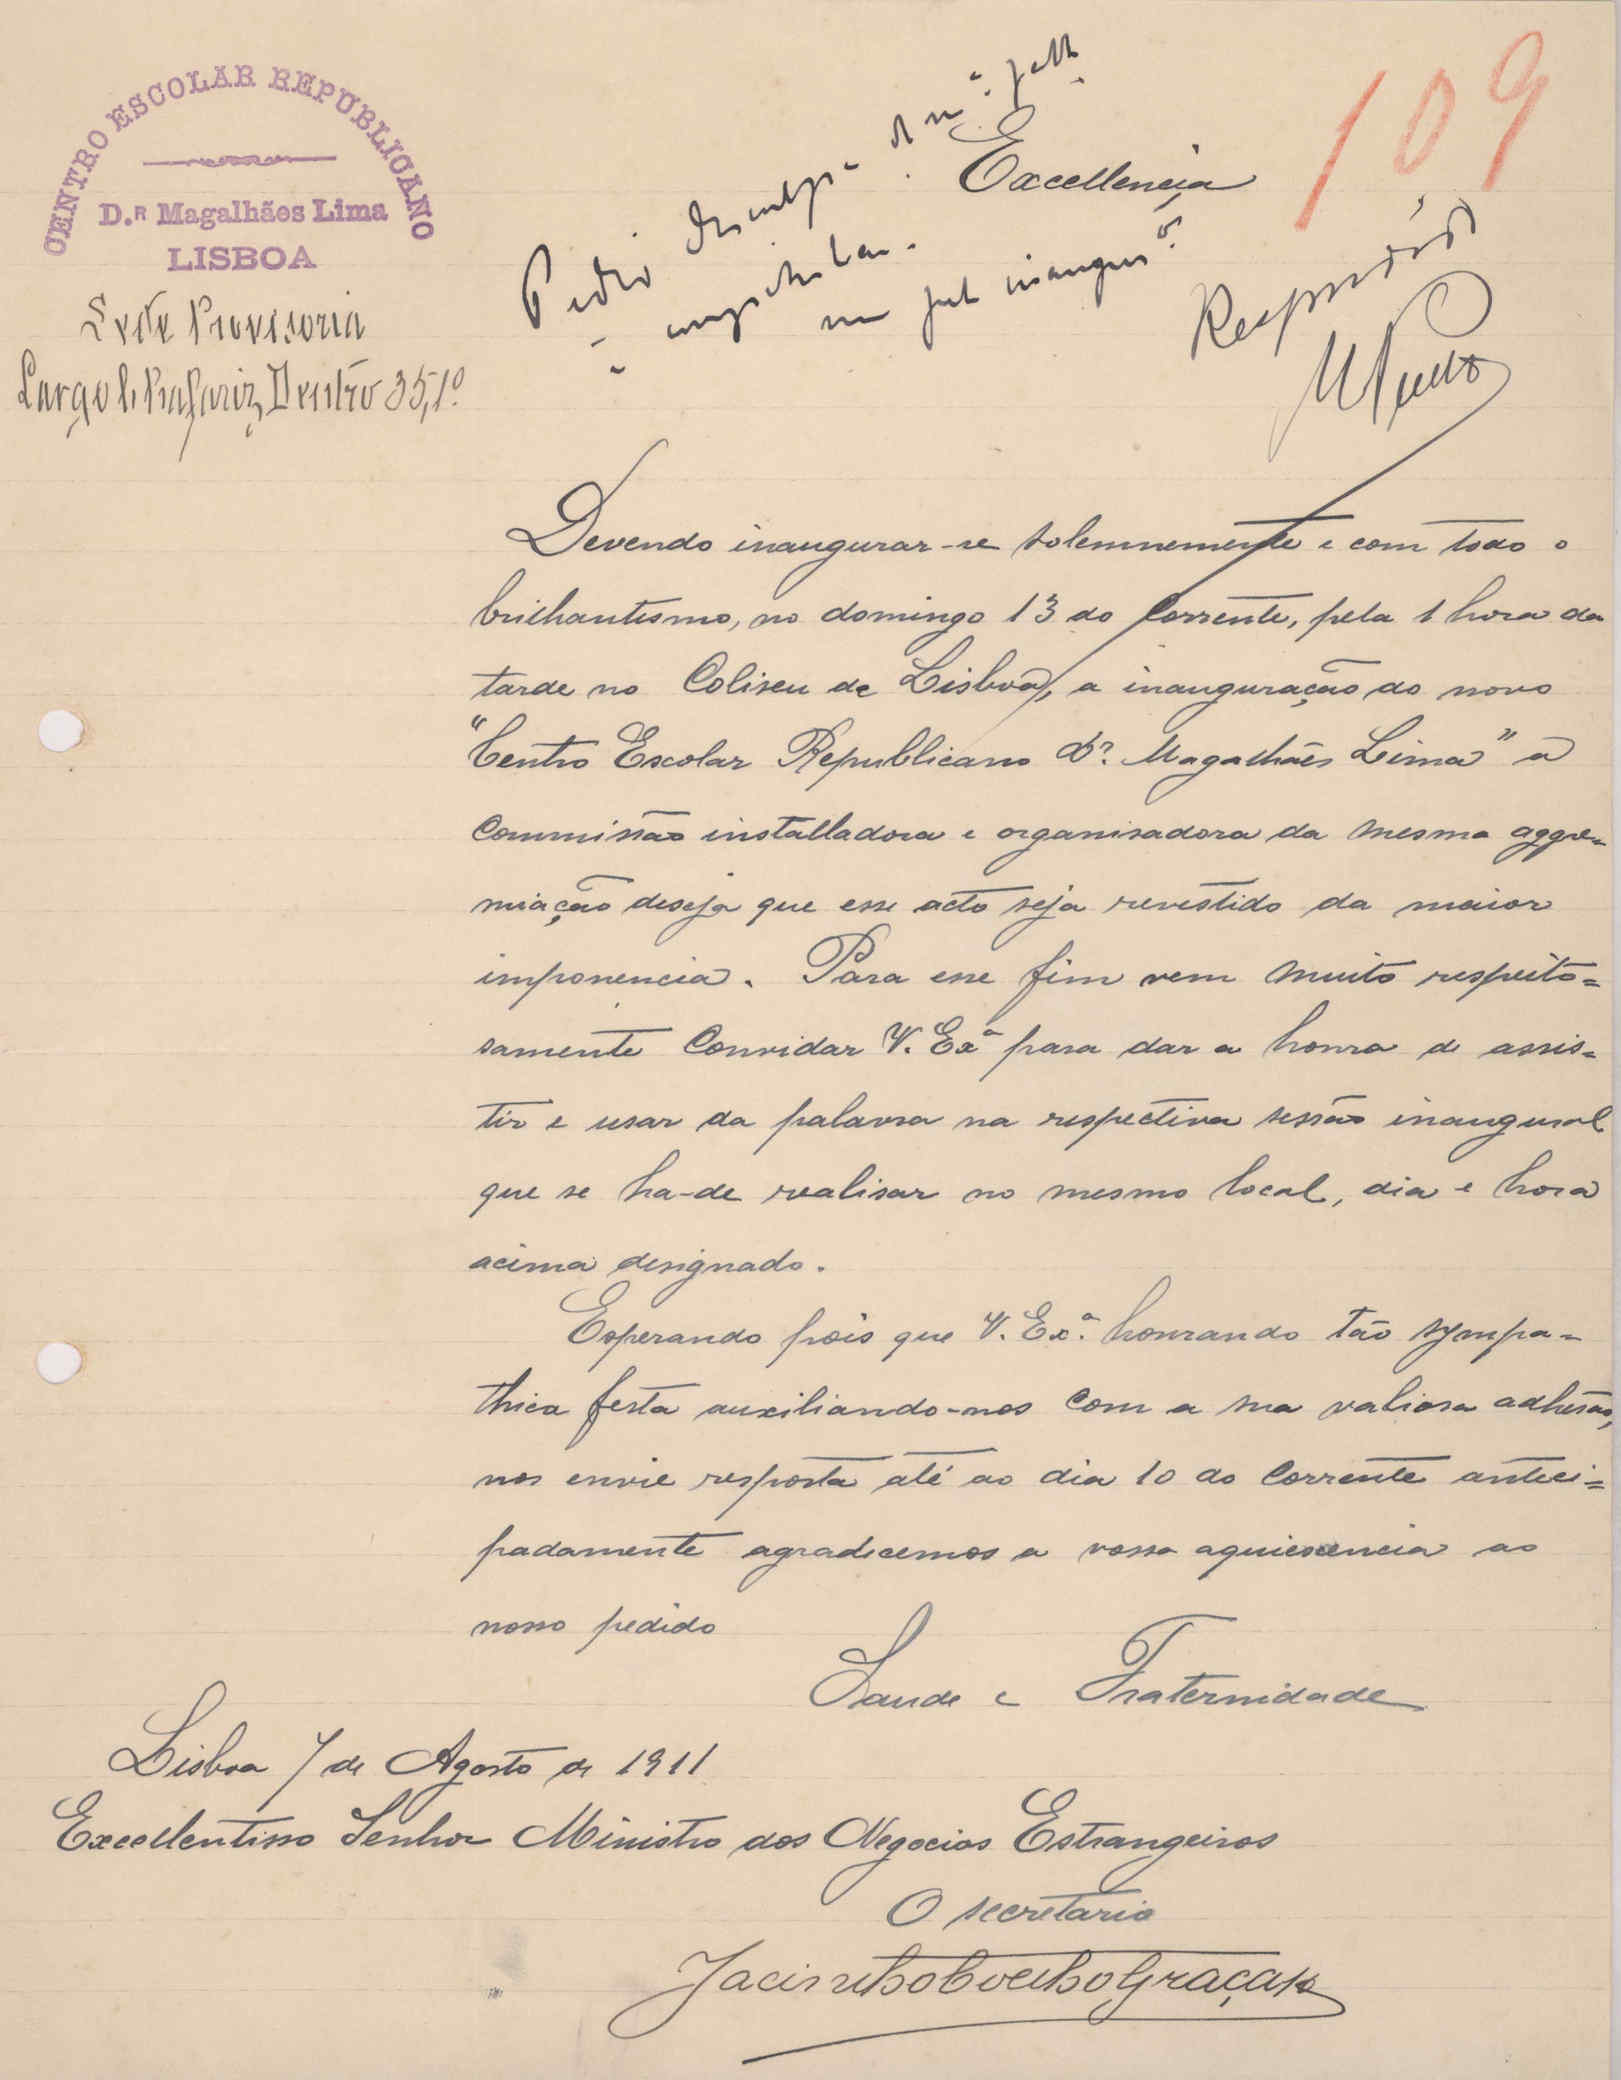 CENTRO ESCOLAR REPUBLICANO
D.R Magalhães Lima
LISBOA
Sede Provisoria
Largo do Chafariz, Dentro 35, 1º
109
Excellencia
Pedir desculpa
Respondido
Devendo inaugurar-se solemnemente e com todo o
brilhantismo, no domingo 13 do corrente, pela 1 hora da
tarde no Coliseu de Lisboa, a inauguração do novo
"Centro Escolar Republicano Dr. Magalhães Lima" a
Commissão installadora e organisadora da mesma aggre-
miação deseja que esse acto seja revestido da maior
imponencia. Para esse fim vem muito respeito=
samente Convidar V. Exª para dar a honra de assis=
tir e usar da palavra na respectiva sessão inaugural
que se ha-de realisar no mesmo local, dia e hora
acima designado.
Esperando pois que V. Ex.ª honrando tão sympa=
thica festa auxiliando-nos com a sua valiosa adhesão,
nos envie resposta até ao dia 10 do corrente anteci=
padamente agradecemos a vossa aquiescencia ao
nosso pedido
Saude e Fraternidade
Lisboa 7 de Agosto de 1911
Excellentisso Senhor Ministro dos Negocios Estrangeiros
O secretario
Jacintho Coelho Graça